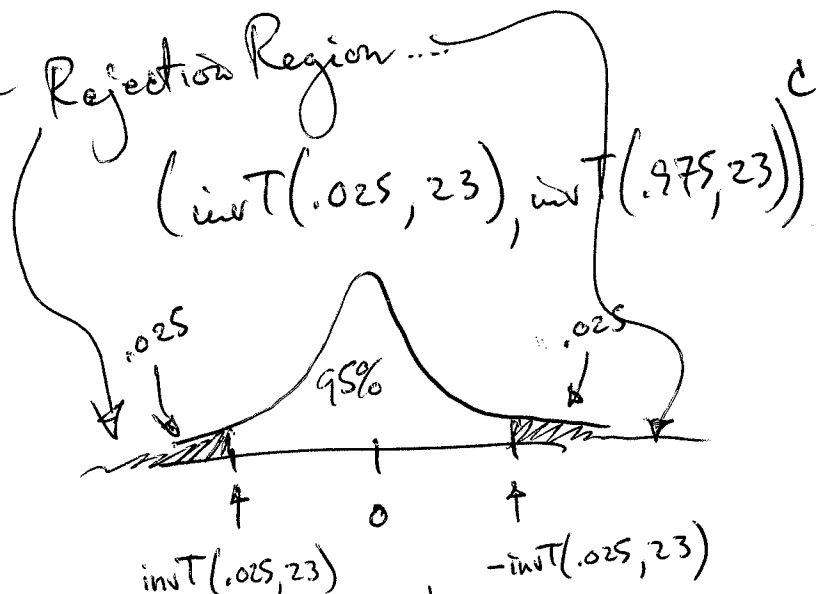 Rejection Region ....
(invT(.025, 23), invT(.975, 23))ᶜ
.025
.025
95%
0
invT(.025, 23)
-invT(.025, 23)